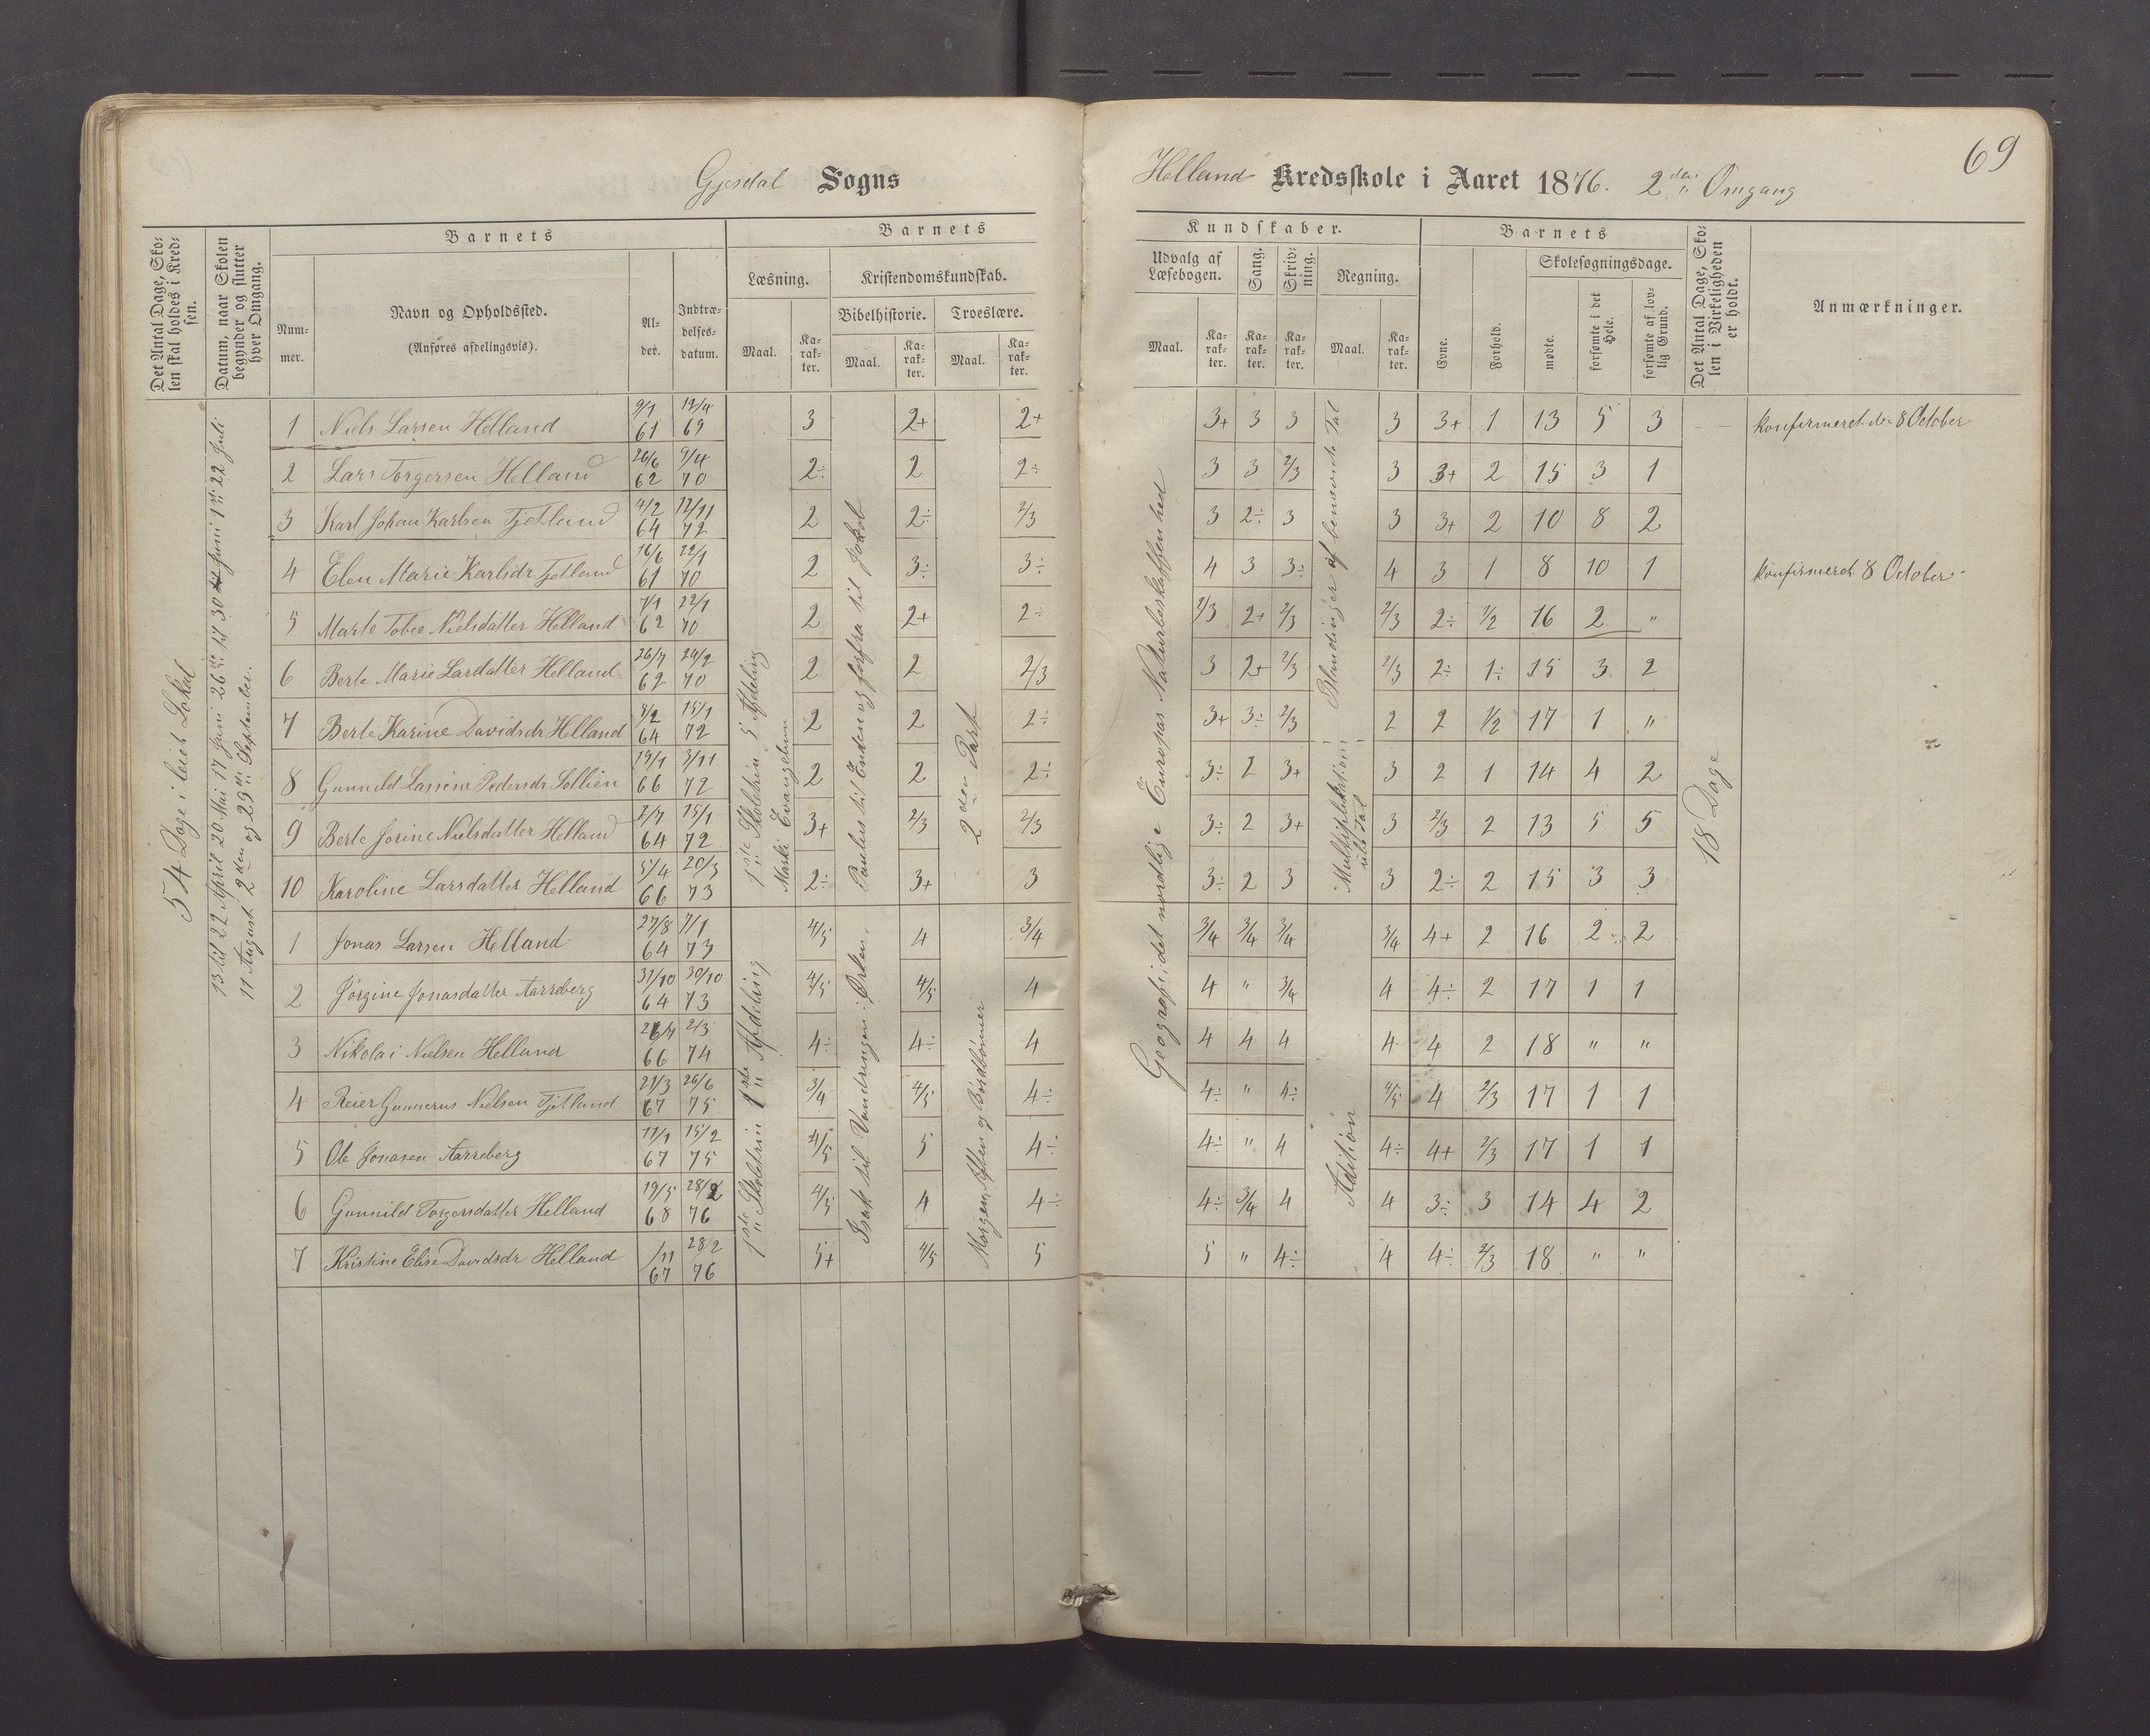 69
Gjesdal Sogns
Helland Kredsskole i Aaret 1876. 2den Omgang
Det Antal Dage, Skolen skal holdes i Kredsen.
Datum, naar Skolen begynder og slutter hver Omgang.
Barnets
Nummer.
Navn og Opholdssted.
(Anføres afdelingsvis).
Alder.
Indtrædelsesdatum.
Barnets
Læsning.
Kristendomskundskab.
Bibelhistorie.
Troeslære.
Maal.
Karakter.
Maal.
Karakter.
Maal.
Karakter.
Kundskaber.
Udvalg af Læsebogen.
Sang.
Skrivning.
Regning.
Maal.
Karakter.
Karakter.
Karakter.
Maal.
Karakter.
Barnets
Evne.
Forhold.
Skolesøgningsdage.
mødte.
forsømte i det Hele.
forsømte af lovlig Grund.
Det Antal Dage, Skolen i Virkeligheden er holdt.
Anmærkninger.
54 Dage i leiet Lokal
13 til 22 April 20 Mai 17 Juni 26 til 30 Juni 1 22 Juli
11 August 2den og 29 September.
1ste Skoletrin 5 Afdeling
Marki Evangelium
Paulus til Enden og forfra til Jakob
2den Part
Geografi: det nordlige Europas Naturbeskaffenhed
Blandinger af benævnte Tal
Multiplikation i
18 Dage
1 Niels Larsen Helland 9/1 61 19/4 69 3 2+ 2+ 3+ 3 3 3 3+ 1 13 5 3 Konfirmeret den 8 October
2 Lars Torgersen Helland 26/6 62 9/4 70 2÷ 2 2÷ 3 3 2/3 3 3+ 2 15 3 1
3 Karl Johan Karlsen Fjetland 4/2 64 12/11 72 2 2÷ 2/3 3 2÷ 3 3 3+ 2 10 8 2
4 Elen Marie Karlsdr Fjetland 16/6 61 22/1 70 2 3÷ 3÷ 4 3 3÷ 4 3 1 8 10 1 Konfirmeret 8 October
5 Marte Tobie Nielsdatter Helland 7/1 62 22/1 70 2 2+ 2÷ 2/3 2+ 2/3 2/3 2÷ 1/2 16 2 "
6 Berte Marie Larsdatter Helland 26/7 62 24/2 70 2 2 2/3 3 2+ 2/3 2/3 2÷ 1÷ 15 3 2
7 Berte Karine Davidsdr Helland 8/2 64 15/1 72 2 2 2÷ 3+ 3÷ 2/3 2 2 1/2 17 1 "
8 Gunnild Lassine Pedersdr Sollien 19/1 66 3/11 72 2 2 2÷ 3÷ 2 3+ 3 2 1 14 4 2
9 Berte Jorine Nielsdatter Helland 2/7 64 15/1 72 3+ 2/3 2/3 3÷ 2 3+ 3 2/3 2 13 5 5
10 Karoline Larsdatter Helland 5/4 66 20/3 73 2÷ 3+ 3 3÷ 2 3 3 2÷ 2 15 3 3
1ste Skoletrin 1ste Afdeling
Isak til Vandringen i Ørken.
Morgen, Aften og Bordbønner
Adition
1 Jonas Larsen Helland 27/8 64 7/1 73 4/5 4 3/4 3/4 3/4 3/4 3/4 4+ 2 16 2 2
2 Jørgine Jonasdatter Aarreberg 31/10 64 30/10 73 4/5 4/5 4 4 " 3/4 4 4÷ 2 17 1 1
3 Nikolai Nielsen Helland 26/4 66 2/3 74 4÷ 4÷ 4 4 4 4 4 4 2 18 " "
4 Reier Gunnerus Nielsen Fjetland 21/3 67 26/6 75 3/4 4/5 4÷ 4÷ " 4÷ 4/5 4 2/3 17 1 1
5 Ole Jonasen Aarreberg 11/1 67 15/2 75 4/5 5 4÷ 4÷ " 4 4÷ 4+ 2/3 17 1 1
6 Gunnild Torgersdatter Helland 19/5 68 28/2 76 4/5 4 4÷ 4÷ 3/4 4 4 3÷ 3 14 4 2
7 Kristine Elise Davidsdr Helland /11 67 28/2 76 5+ 4/5 5 5 " 4÷ 4 4÷ 2/3 18 " "